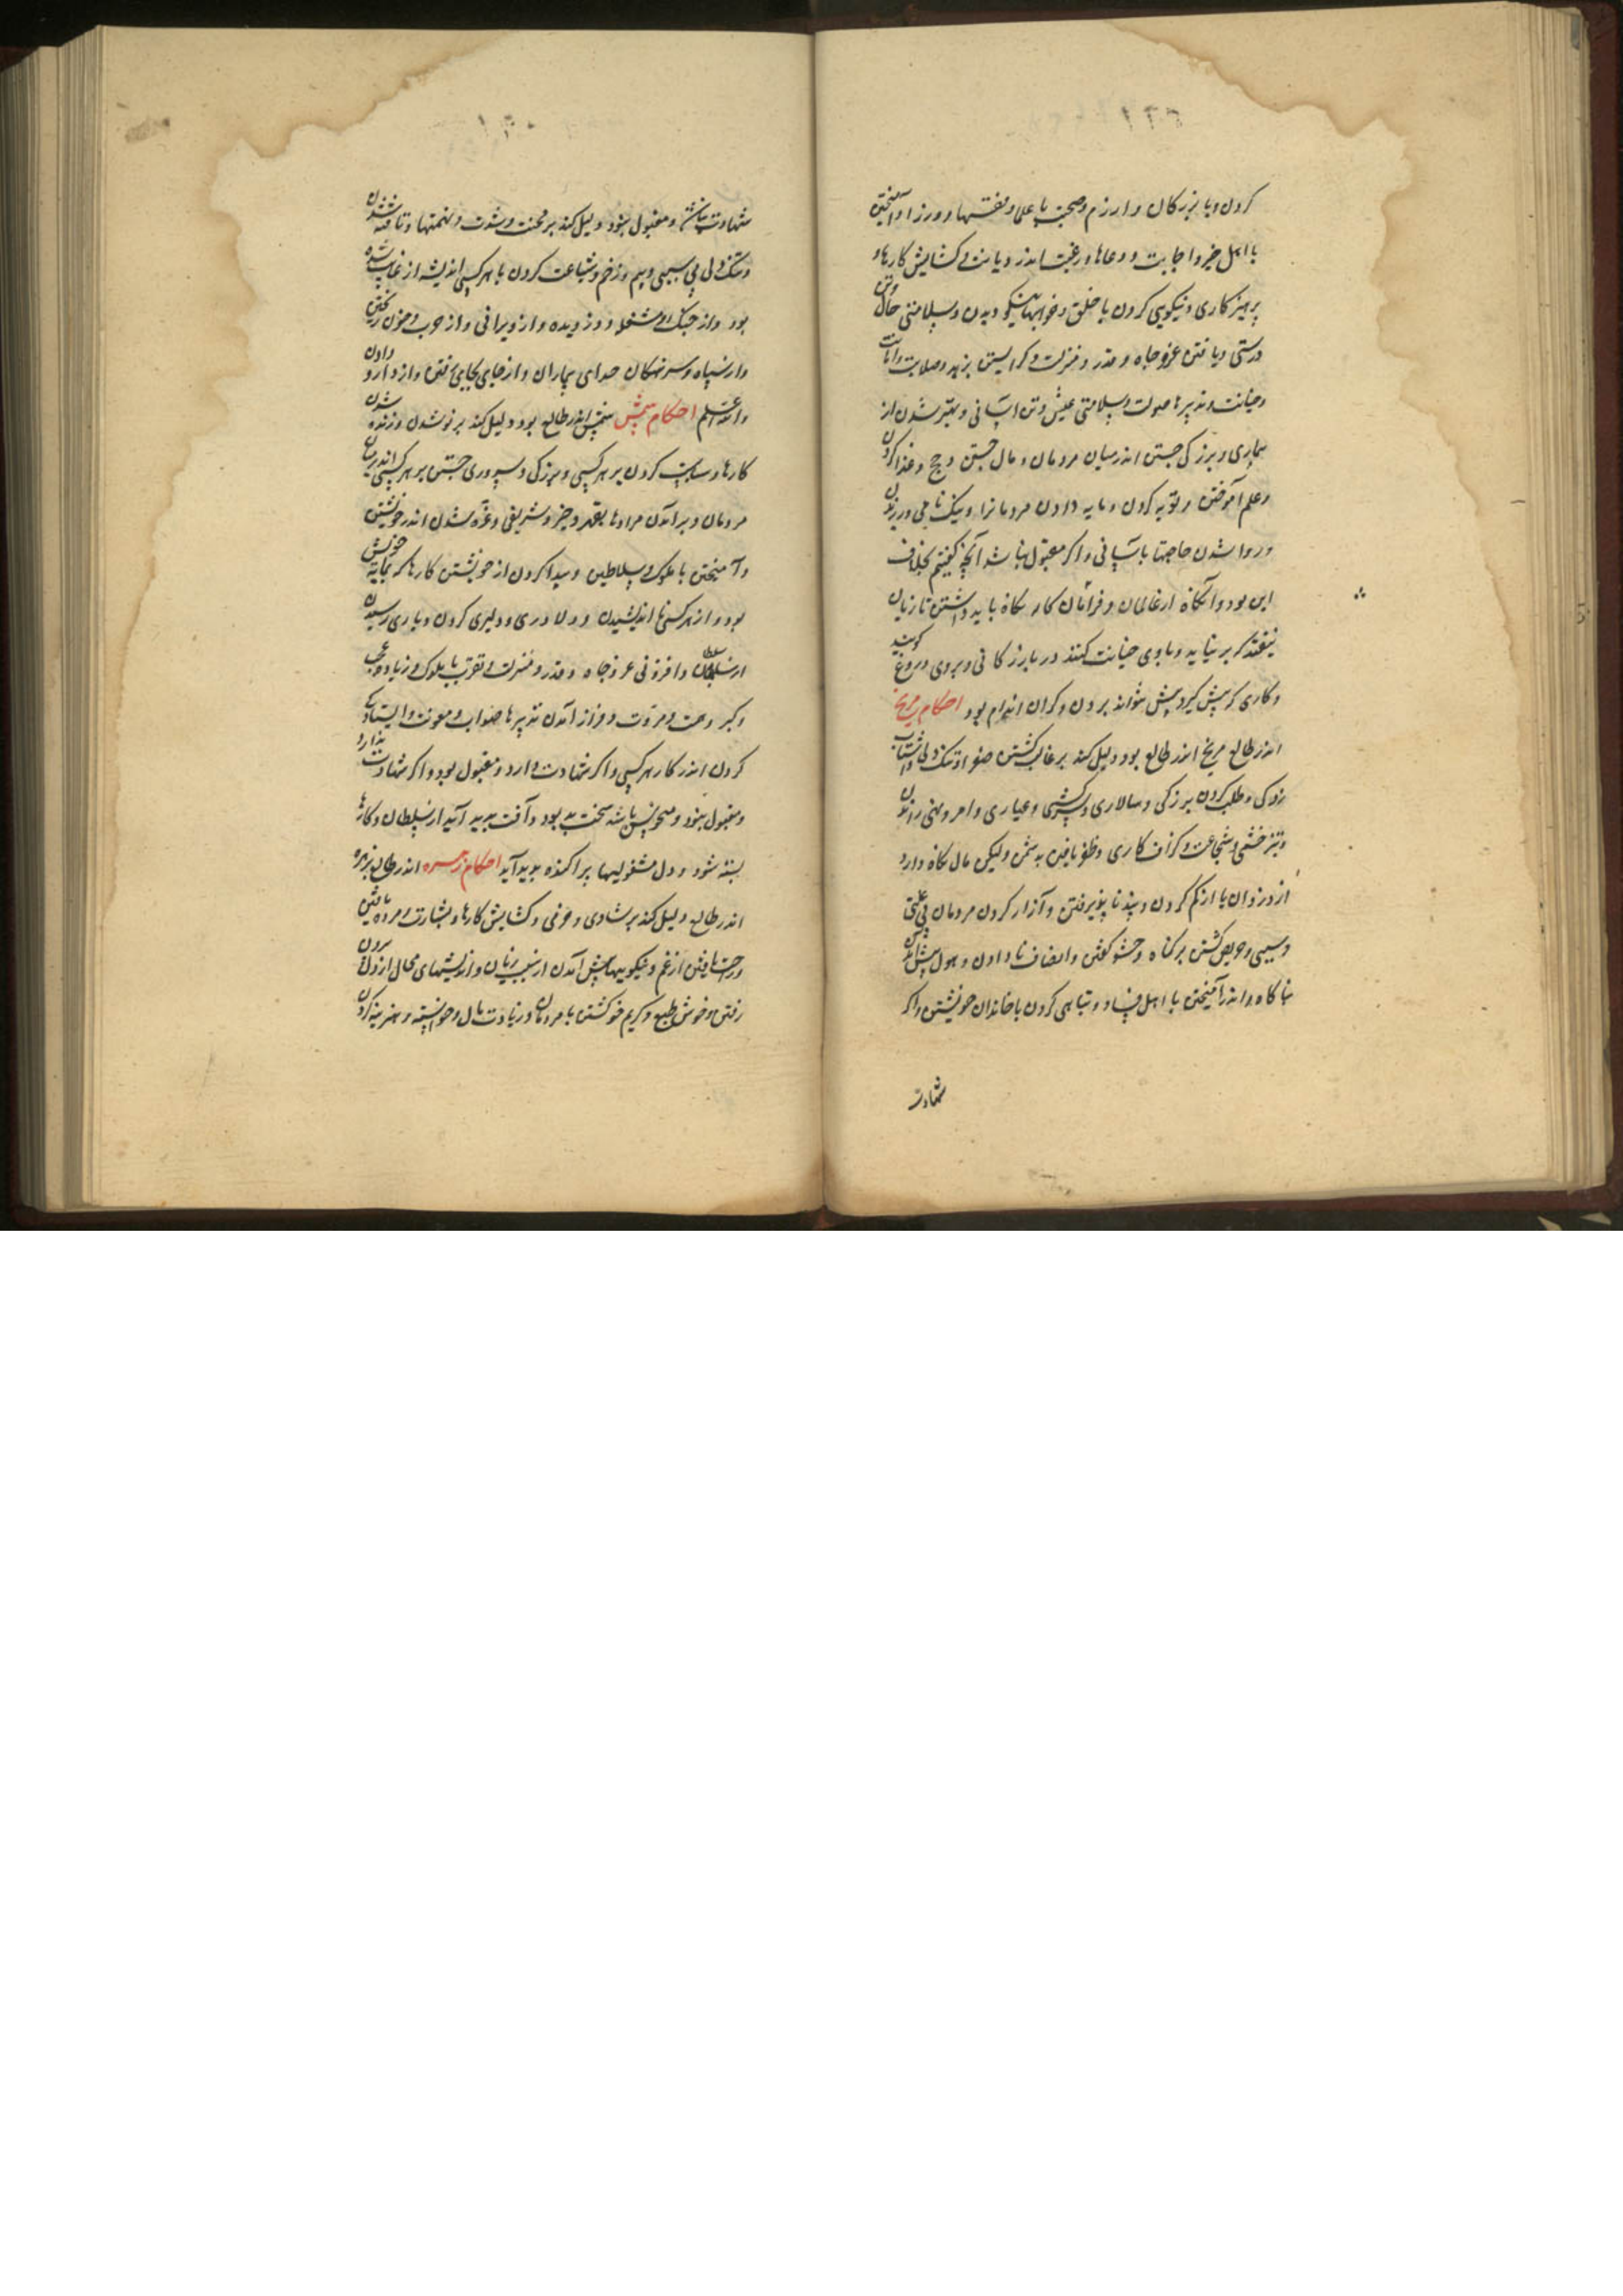 کردن و با بزرکان و ارزم و صحبت با علما و فقیها و ورزا و آمیختن
با اهل خیر و اجابت و دعاها و رغبت اندر دیانت و کشایش کارها و
پرهیز کاری و نیکویی کردن با خلق و خوابهای نیکو دیدن و سلامتی حال و تن
درستی و یافتن عز و جاه و قدر و منزلت و کرایستن بزهد و صلابت و امانت
و خیانت و تدبیرها صولت و سلامتی عیش و تن اسانی و بهتر شدن از
بیماری و بزرکی جستن اندر میان مردمان و مال جستن و حج و غذا کردن
و علم آموختن و توبه کردن و مایه دادن مردمانرا و نیک نامی ورزیدن
و روا شدن حاجتها باسانی و اکر مقبول نباشد آنچه کفتیم بخلاف
این بود و آنکاه از غالمان و فراشان کار نکاه باید داشتن تا زیان
نیفتد که بر نیاید و با وی خیانت کنند در بازرکانی و بر وی دروغ کویند
و کاری که پیش کیرد پیش نتواند بردن و کران اندام بود احکام مریخ
اندر طالع مریخ اندر طالع بود دلیل کند بر غالب کشتن صفرا و تنک دلی و شتاب
زدکی و طلب کردن بزرکی و سالاری و سرکشی و عیاری و امر و نهی راندن
و تیز خشمی و شجاعت و کزاف کاری و ظفر یافتن بدشمن ولیکن مال نکاه دارد
از دزدان با ارکم کردن و پند نا پذیرفتن و آزار کردن مردمان بی علتی
و سببی و حریص کشتن بر کناه و حشو کفتن و انصاف نا دادن و هول پیش آمدن
ناکاه و اندر آمیختن با اهل فساد و تباهی کردن با خاندان خویشتن و اکر
شهادت
شهادت نباشد و مقبول نبود دلیل کند بر محنت و شدت و تهمتها و تافته شدن
و تنک دلی بی سببی و بیم و زخم و شناعت کردن با هر کسی اندیشه از غایب شده
بود و از جنک و مشغله و دزدیده و از ویرانی و از چوب و خون ریختن
و از سپاه و سرهنکان صدای بیماران و از جای بجای رفتن و از دارو دادن
والله اعلم احکام شمس شمس اندر طالع بود دلیل کند بر نو شدن و زنده شدن
کارها و سیاست کردن بر هر کسی و بزرکی و سروری جستن بر هر کسی اندر میان
مردمان و بر آمدن مرادها بقهر و چیز و شریفی و غره شدن اندر خویشتن
و آمیختن با ملوک و سلاطین و پیدا کردن از خویشتن کارها که نمایه خویش
بود و از هر کسی نا اندیشیدن و دلاوری و دلیری کردن و یاری رسیدن
از سلطان و افزونی عز و جاه و قدر و منزلت و تقرب با ملوک و زیادت عجب
و کبر و همت و مروت و فراز آمدن تدبیرها صواب و معونت و ایستادکی
کردن اندر کار هر کسی و اکر شهادت دارد و مقبول بود و اکر شهادت ندارد
و مقبول نبود و منحوس باشد سخت بد بود و آفت پدید آید از سلطان و کارها
بسته شود و دل مشغولیها پراکنده پدید آید احکام زهره اندر طالع زهره
اندر طالع دلیل کند بر شادی و خرمی و کشایش کارها و بشارت و مژده یافتن
و راحت یافتن از غم و نیکوییها پیش آمدن از سبب زنان و اندیشهای محال از دل بردن
رفتن و خوش طبع و کریم خو کشتن با مردمان و زیادت مال و خواسته و هزینه کردن